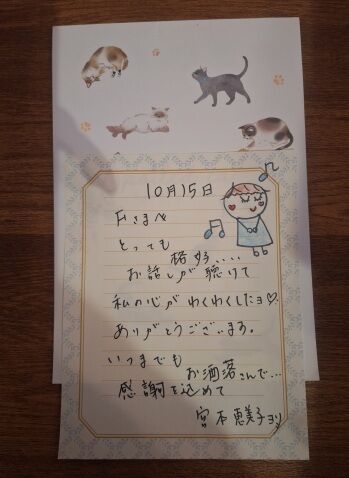 10月15日
Fさまへ
とっても
格好....
お話しが聴けて
私の心がわくわくしたョ♡
ありがとうございます。
いつまでも
お洒落さんで...
感謝を込めて
宮本恵美子ヨリ